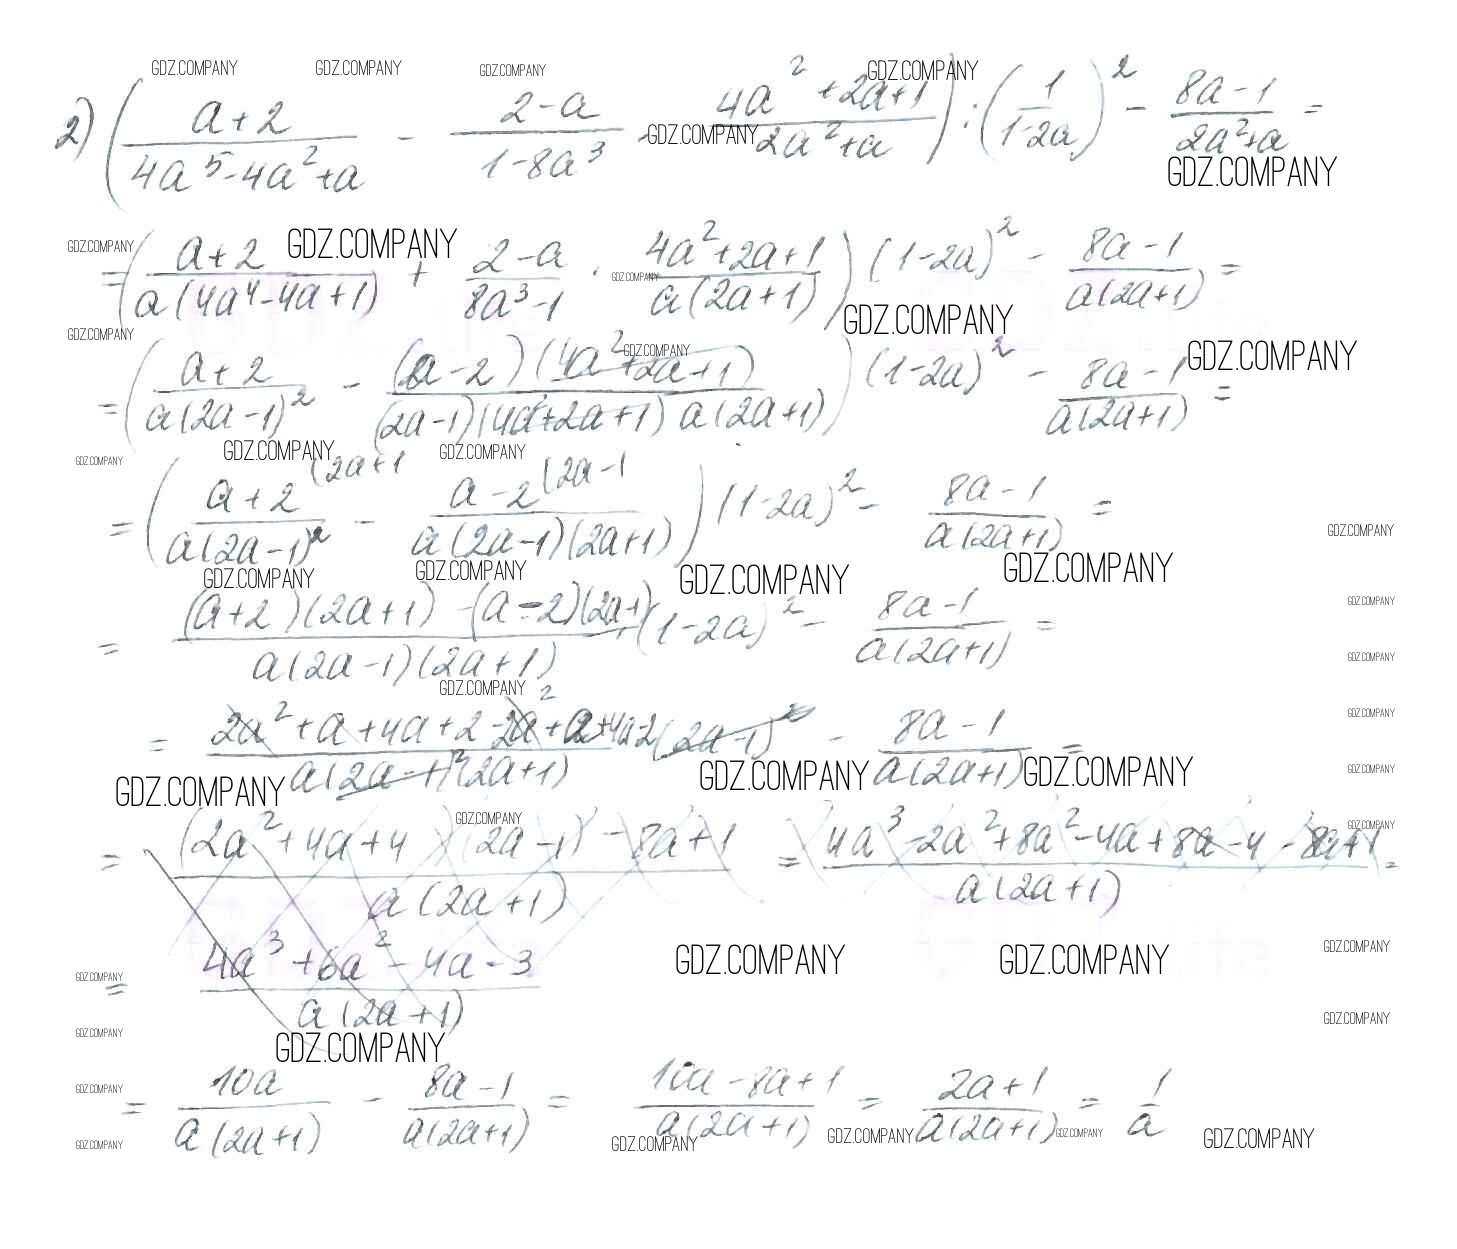 GDZ.COMPANY GDZ.COMPANY GDZ.COMPANY GDZ.COMPANY
2) ( (a+2)/(4a⁵-4a²+a) - (2-a)/(1-8a³) · (4a²+2a+1)/(2a²+a) ) : (1/(1-2a))² - (8a-1)/(2a²+a) =
GDZ.COMPANY GDZ.COMPANY
GDZ.COMPANY GDZ.COMPANY GDZ.COMPANY
= ( (a+2)/(a(4a⁴-4a+1)) + (2-a)/(8a³-1) · (4a²+2a+1)/(a(2a+1)) ) (1-2a)² - (8a-1)/(a(2a+1)) =
GDZ.COMPANY GDZ.COMPANY GDZ.COMPANY GDZ.COMPANY
= ( (a+2)/(a(2a-1)²) - ((a-2)(4a²+2a+1))/((2a-1)(4a²+2a+1) a(2a+1)) ) (1-2a)² - (8a-1)/(a(2a+1)) =
GDZ.COMPANY GDZ.COMPANY GDZ.COMPANY
= ( (a+2 (2a+1)/(a(2a-1)²) - (a-2 (2a-1)/(a(2a-1)(2a+1)) ) (1-2a)² - (8a-1)/(a(2a+1)) =
GDZ.COMPANY
GDZ.COMPANY GDZ.COMPANY GDZ.COMPANY GDZ.COMPANY
= ((a+2)(2a+1) - (a-2)(2a-1))/(a(2a-1)(2a+1)) · (1-2a)² - (8a-1)/(a(2a+1)) =
GDZ.COMPANY GDZ.COMPANY
GDZ.COMPANY GDZ.COMPANY
= (2a²+a+4a+2-2a²+a+4a-2)/(a(2a-1)²(2a+1)) (2a-1)² - (8a-1)/(a(2a+1)) =
GDZ.COMPANY GDZ.COMPANY GDZ.COMPANY GDZ.COMPANY
GDZ.COMPANY GDZ.COMPANY
= ((2a²+4a+4)(2a-1) - 8a+1)/(a(2a+1)) = (4a³-2a²+8a²-4a+8a-4-8a+1)/(a(2a+1)) =
GDZ.COMPANY GDZ.COMPANY GDZ.COMPANY GDZ.COMPANY
= (4a³+6a²-4a-3)/(a(2a+1))
GDZ.COMPANY GDZ.COMPANY
GDZ.COMPANY
GDZ.COMPANY
= 10a/(a(2a+1)) - (8a-1)/(a(2a+1)) = (10a-8a+1)/(a(2a+1)) = (2a+1)/(a(2a+1)) = 1/a
GDZ.COMPANY GDZ.COMPANY GDZ.COMPANY GDZ.COMPANY GDZ.COMPANY